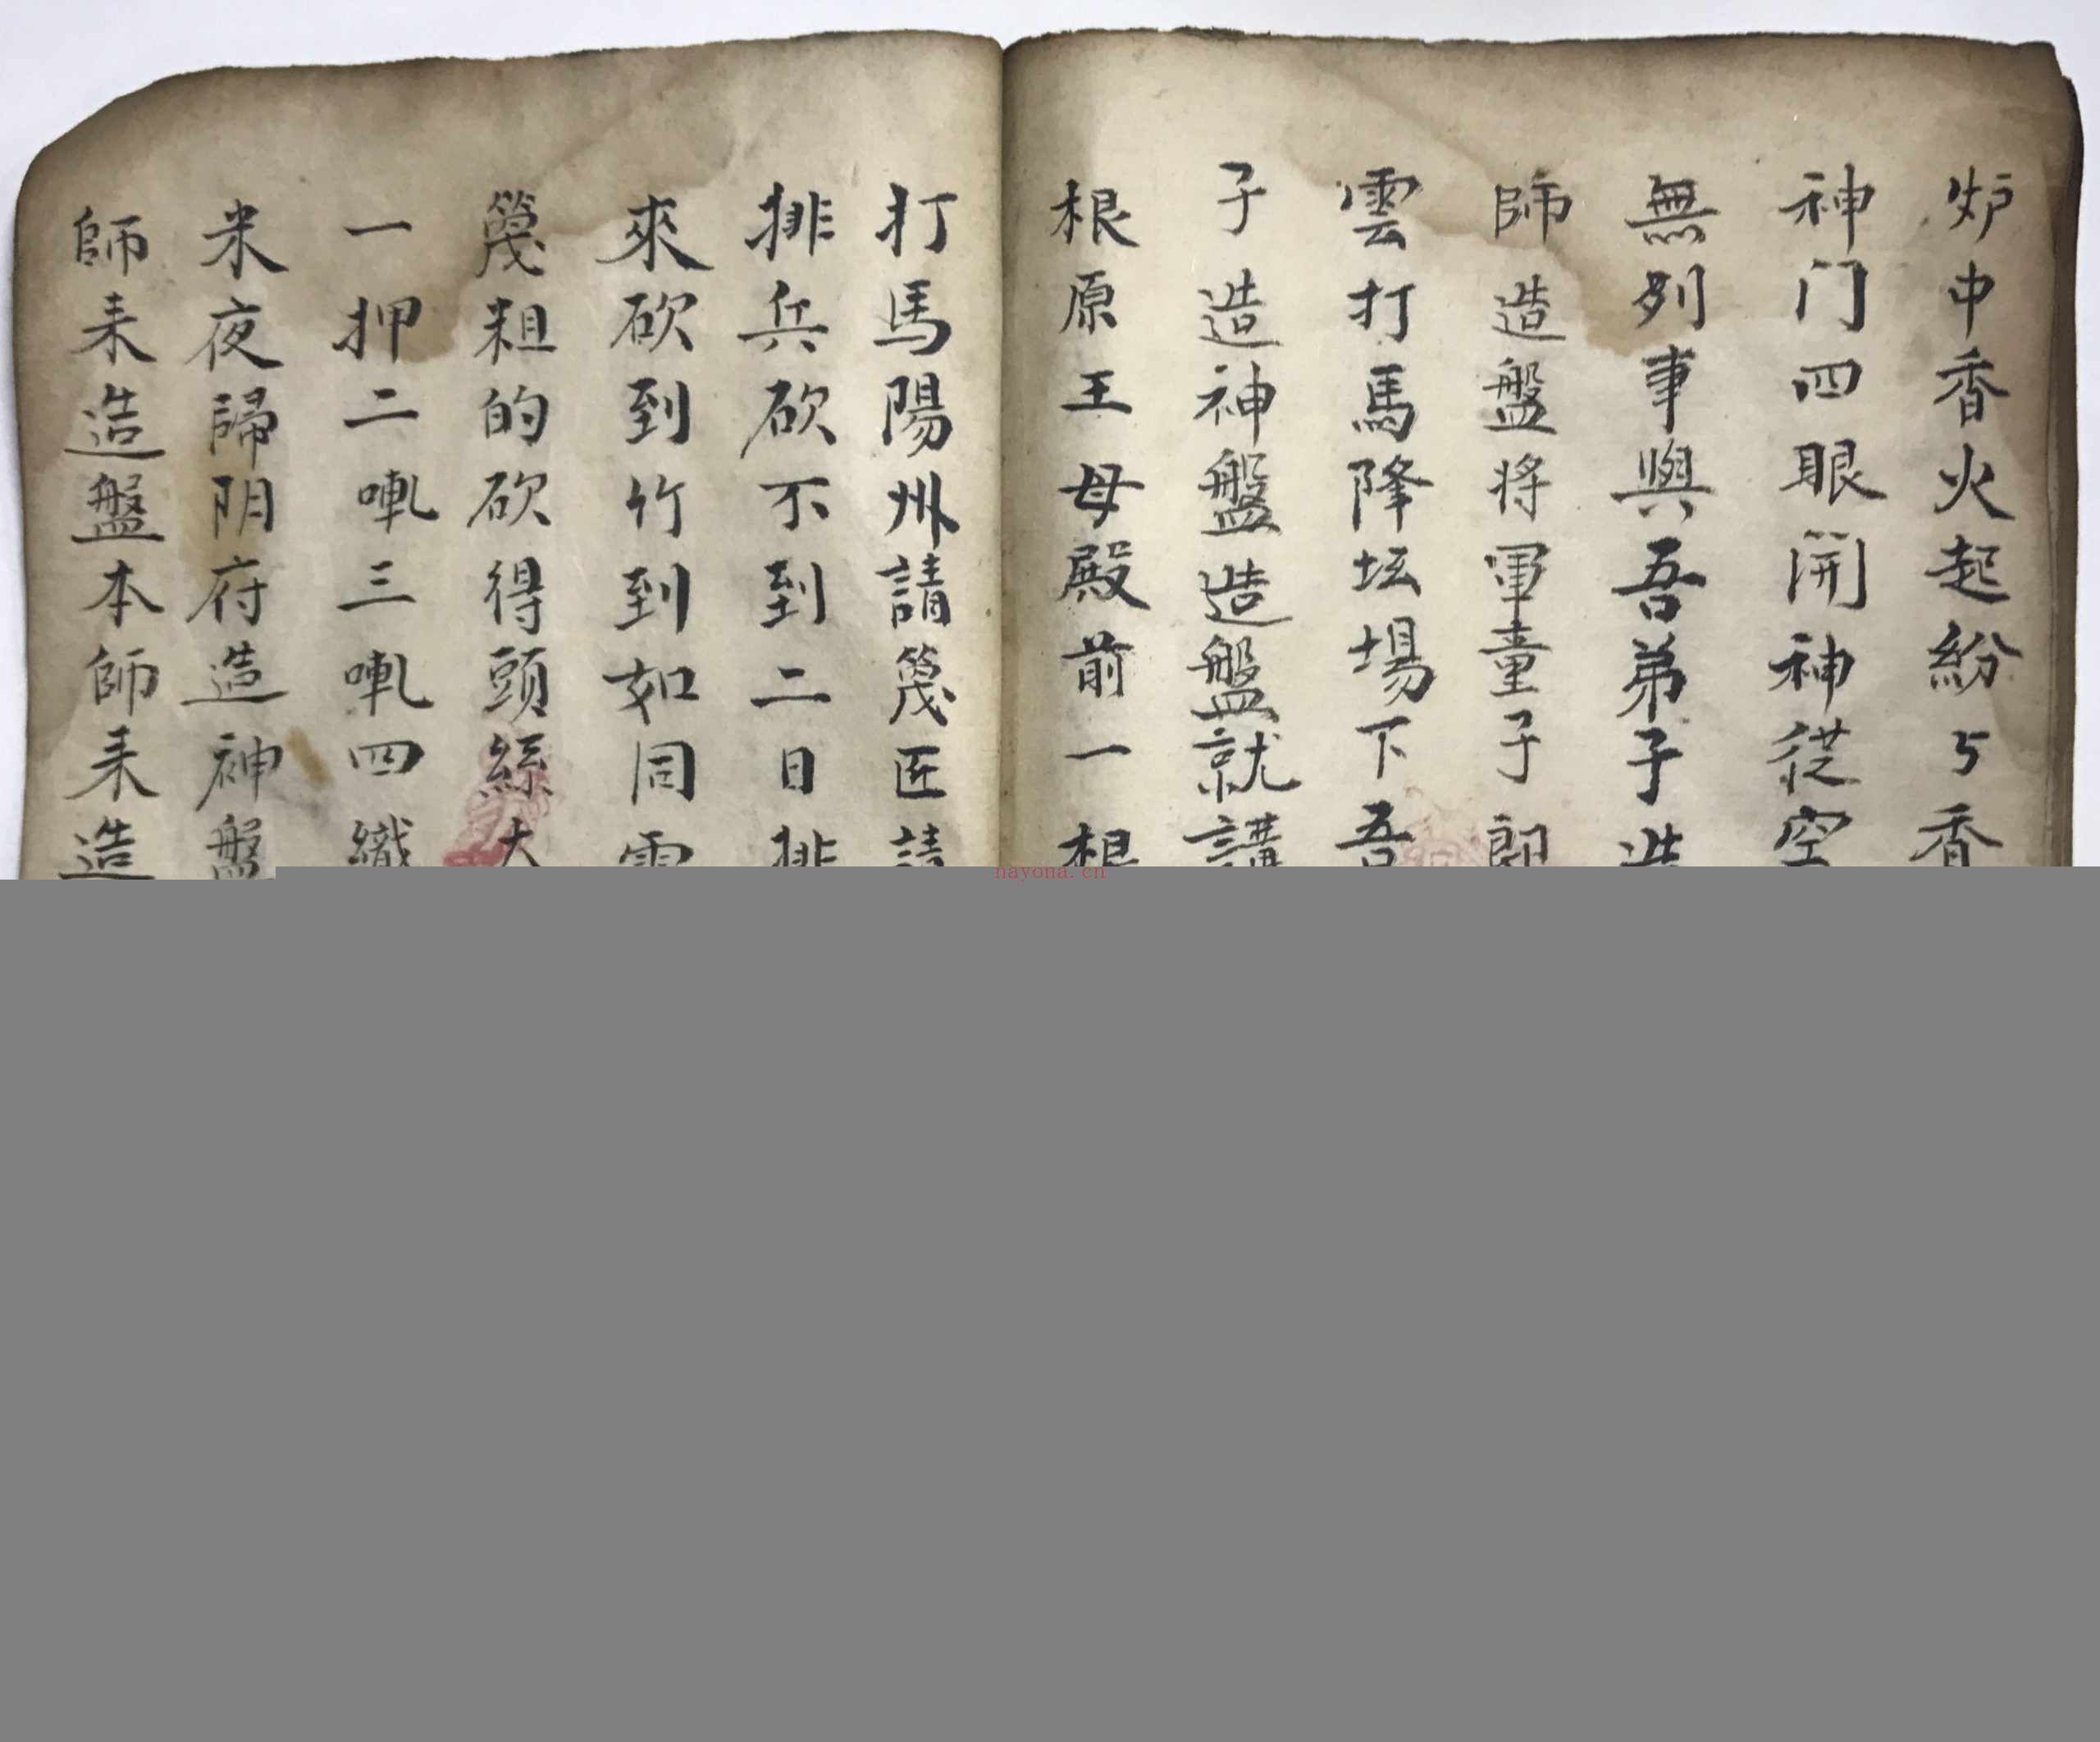 炉中香火起紛㇉香
神门四眼闁神從空
無列事與吾弟子造
師造盤将軍童子郎
雲打馬降坛場下吾
子造神盤造盤就講
根原王母殿前一根
打馬陽州請篾匠請
排兵砍不到二日排
來砍到竹到如同雷
篾粗的砍得頭絲大
一押二𠹌三𠹌四織
米夜歸阴府造神盤
師耒造盤本師耒造
nayona.cn